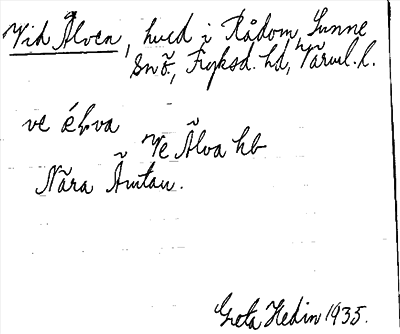 Vid Älven, hved i Rådom, Sunne
sn, Fryksd. hd, Värml. l.
ve
Ve Älva hb
Nära Åmtan.
Greta Hedin 1935.